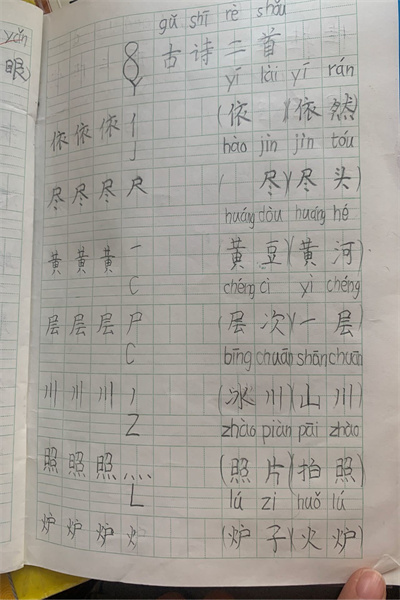 yǎn
眼)
gǔ shī rè shǒu
8 古诗二首
Y yī lài yī rán
依依依亻 (依 )(依然)
J hào jìn jìn tóu
尽尽尽尺 ( 尽)(尽头)
huáng dòu huáng hé
黄黄黄一 (黄豆)(黄河)
C chéng cì yì chéng
层层层尸 (层次)(一层)
C bīng chuān shān chuān
川川川丿 (冰川)(山川)
Z zhào piàn pāi zhào
照照照灬 (照片)(拍照)
L lú zi huǒ lú
炉炉炉火 (炉子)(火炉)